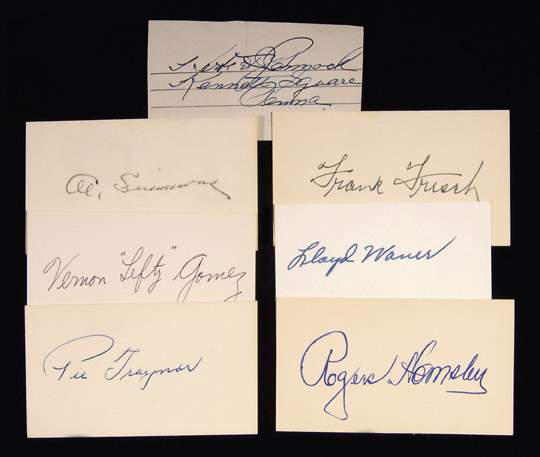 Herbert J Pennock
Kennett Square
Penna.
Al. Simmons
Frank Frisch
Vernon "Lefty" Gomez
Lloyd Waner
Pie Traynor
Rogers Hornsby